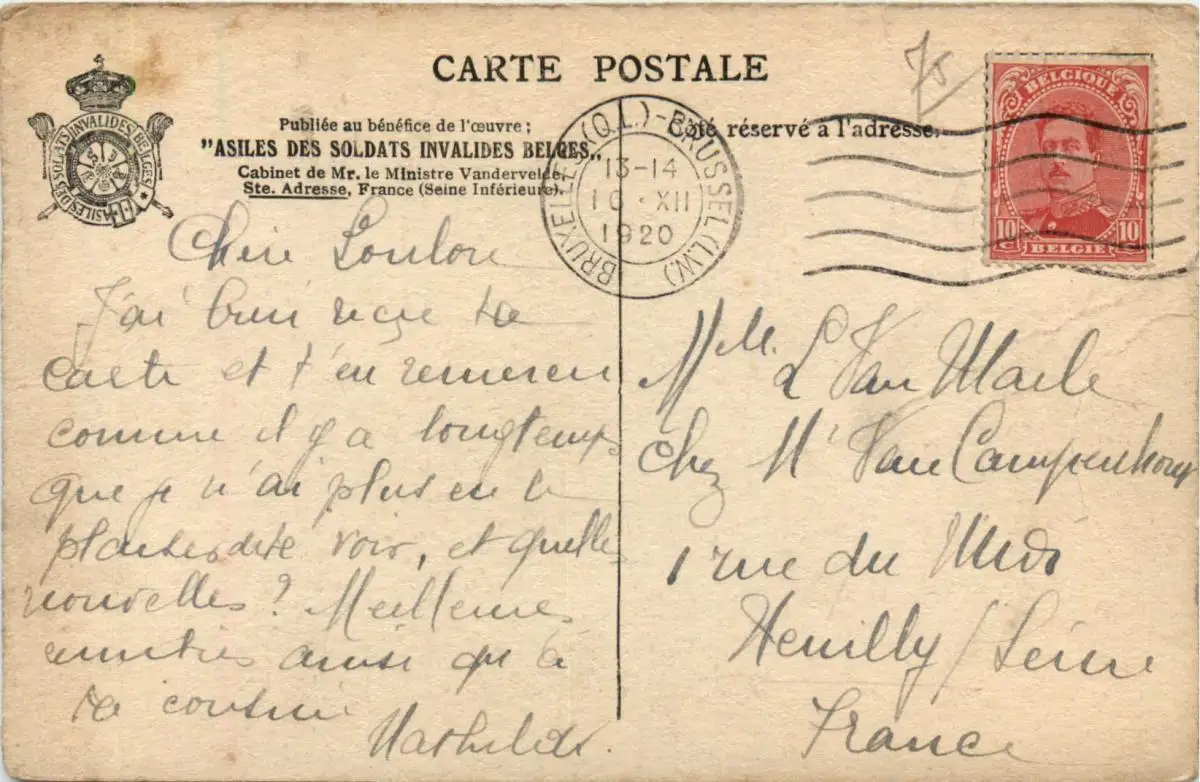 CARTE POSTALE
75
Publiée au bénéfice de l'œuvre :
"ASILES DES SOLDATS INVALIDES BELGES"
Cabinet de Mr. le Ministre Vandervelde,
Ste. Adresse, France (Seine Inférieure).
ASILES DES SOLDATS INVALIDES BELGES
Côté réservé à l'adresse.
BRUXELLES (Q.L.) - BRUSSEL (L.W.)
13-14
10 XII
1920
BELGIQUE
10 c 10 c
BELGIE
Chère Loulou
J'ai bien reçu ta
carte et t'en remercie
comme il y a longtemps
que je n'ai plus eu le
plaisir de te voir, et quelles
nouvelles? Meilleures
amitiés ainsi qu'à
ta cousine
Mathilde.
Mlle. L Van Marle
chez Mr Van Campenhout
1 rue du Midi
Neuilly / Seine
France